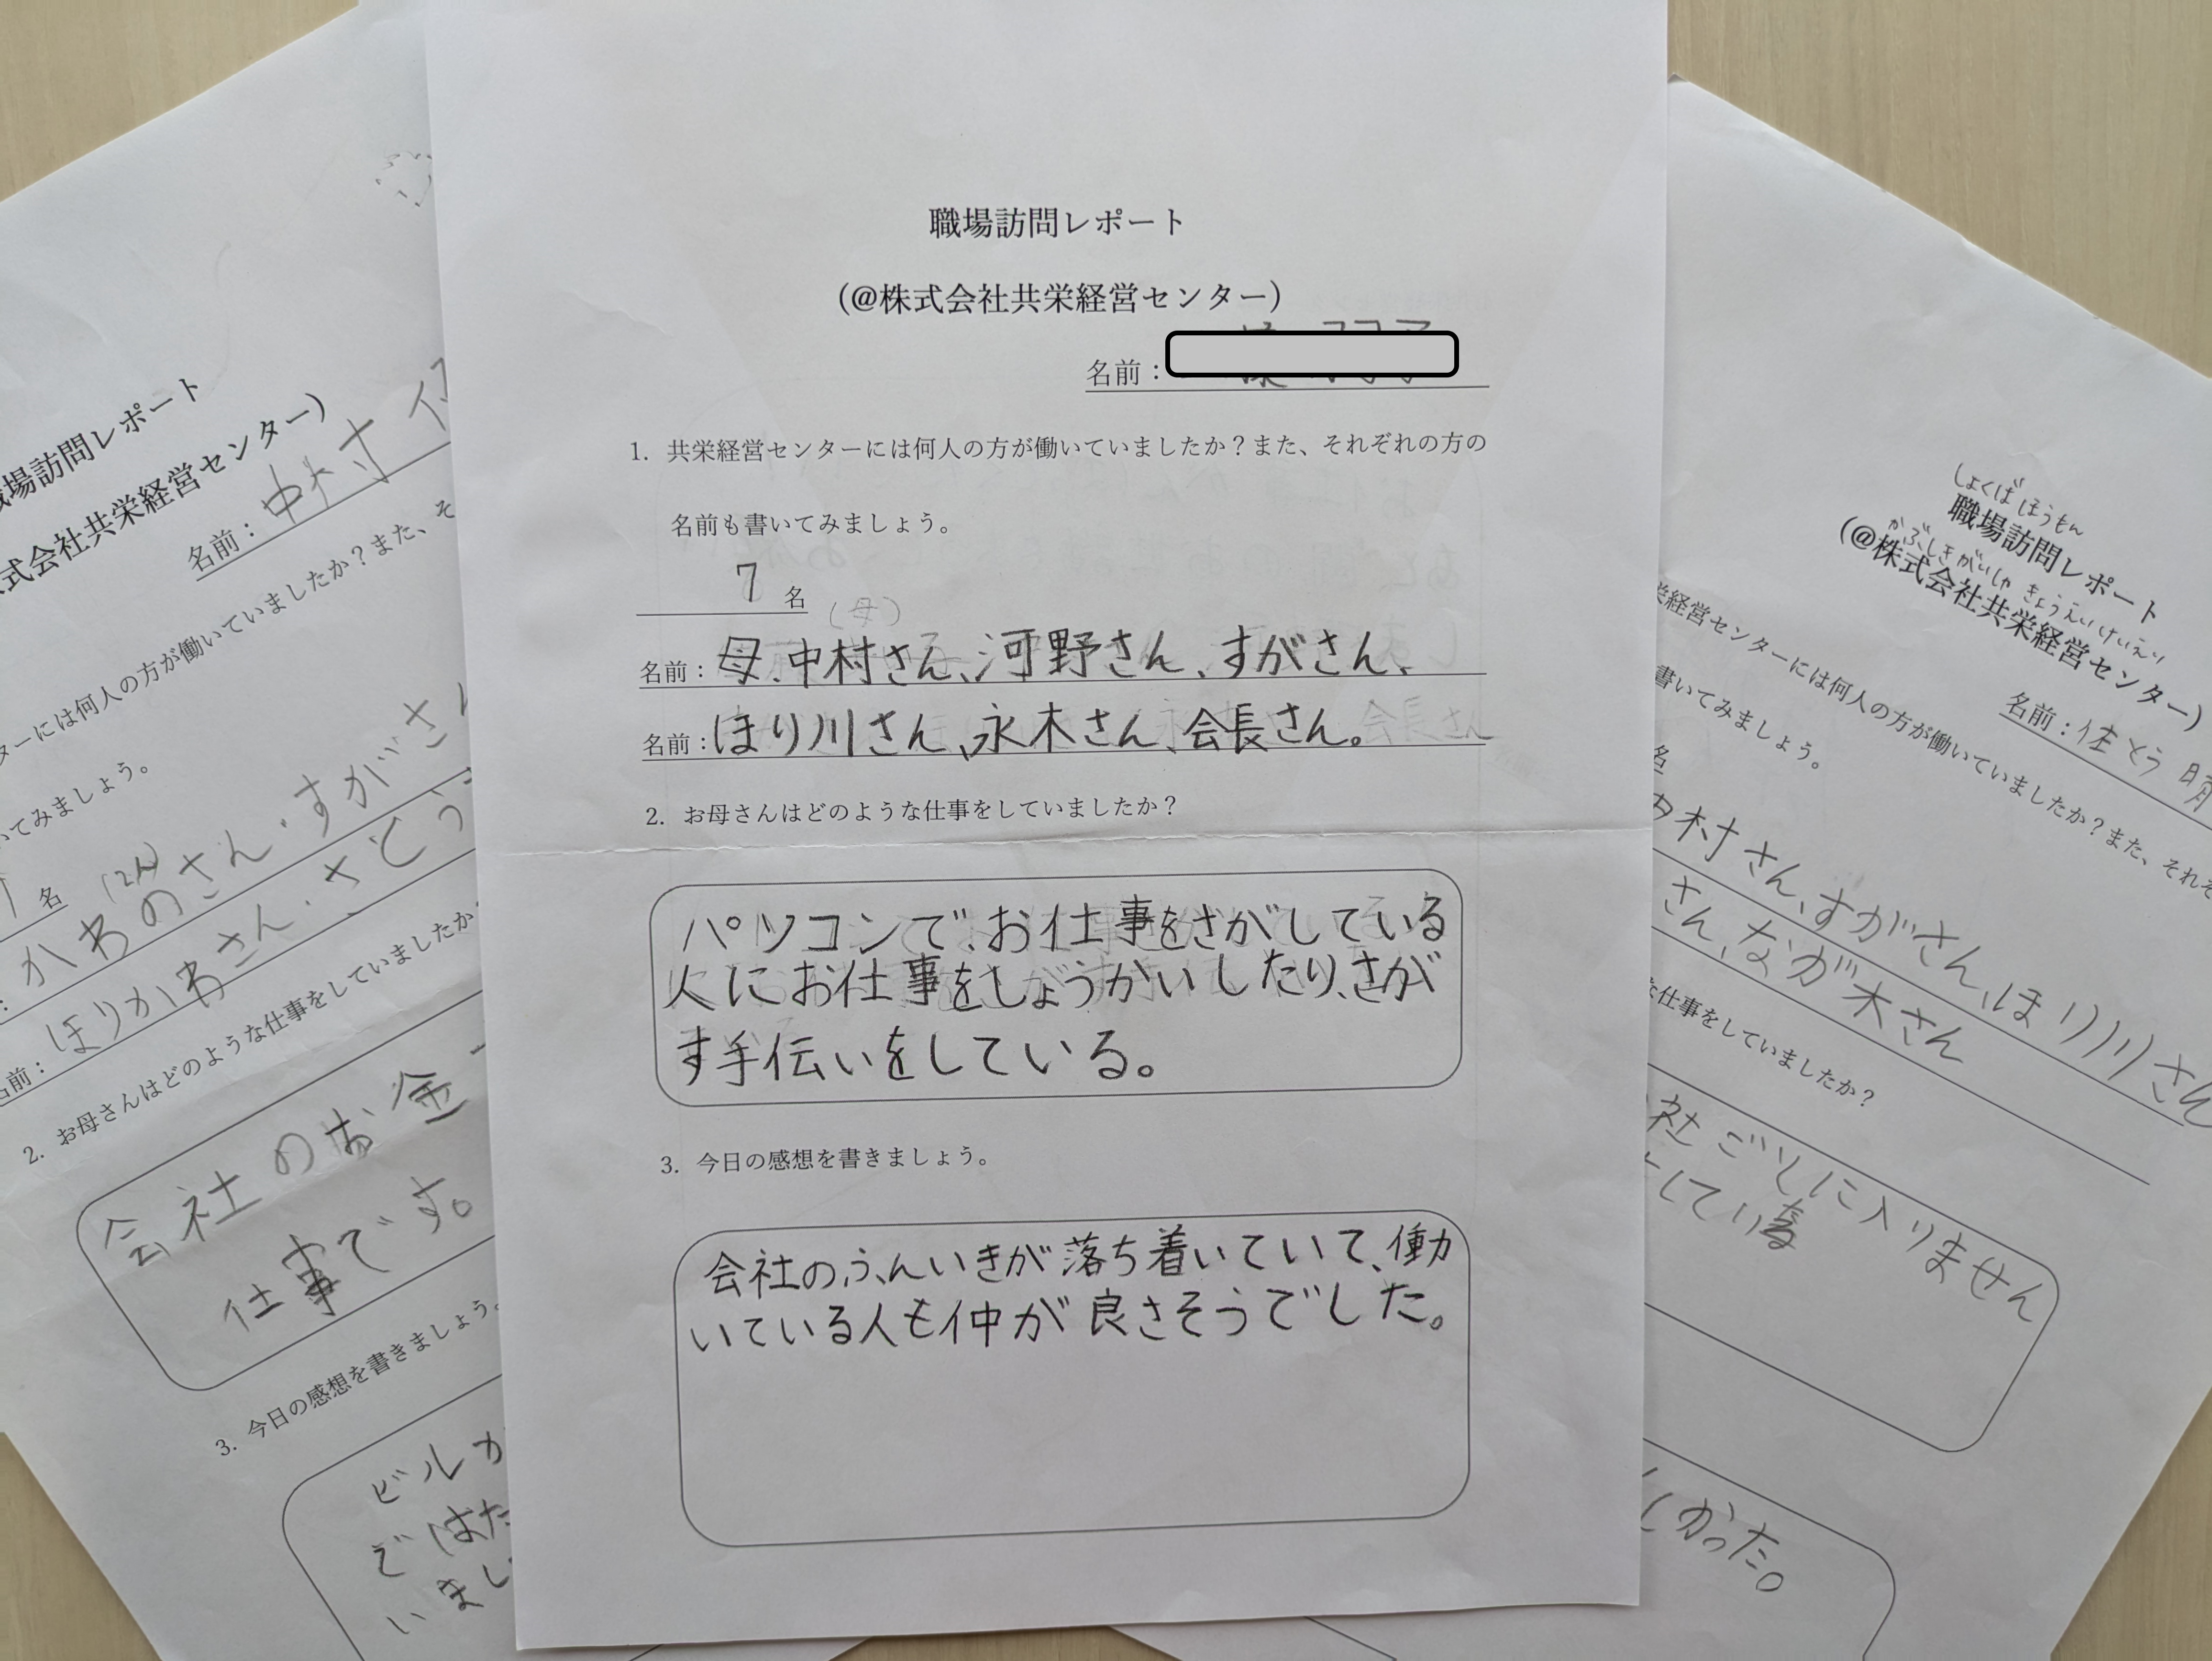 職場訪問レポート
(@株式会社共栄経営センター)
名前：
1. 共栄経営センターには何人の方が働いていましたか？また、それぞれの方の
名前も書いてみましょう。
7 名
(母)
名前：母、中村さん、河野さん、すがさん、
名前：ほり川さん、永木さん、会長さん。
2. お母さんはどのような仕事をしていましたか？
パソコンで、お仕事をさがしている
人にお仕事をしょうかいしたり、さが
す手伝いをしている。
3. 今日の感想を書きましょう。
会社のふんいきが落ち着いていて、働
いている人も仲が良さそうでした。
場訪問レポート
式会社共栄経営センター)
名前：中村
ターには何人の方が働いていましたか？また、そ
いてみましょう。
名 (2人)
：かわのさん・すがさん
名前：ほりかわさん・さとう
2. お母さんはどのような仕事をしていましたか
会社のお金
仕事です。
3. 今日の感想を書きましょう。
ビルが
ではた
いまし
しょくばほうもん
職場訪問レポート
かぶしきがいしゃ きょうえいけいえい
(@株式会社共栄経営センター)
名前：佐とう 晴
栄経営センターには何人の方が働いていましたか？また、それぞ
書いてみましょう。
名
中村さん、すがさん、ほり川さん
さん、なが木さん
な仕事をしていましたか？
社ごとに入りません
している
しかった。